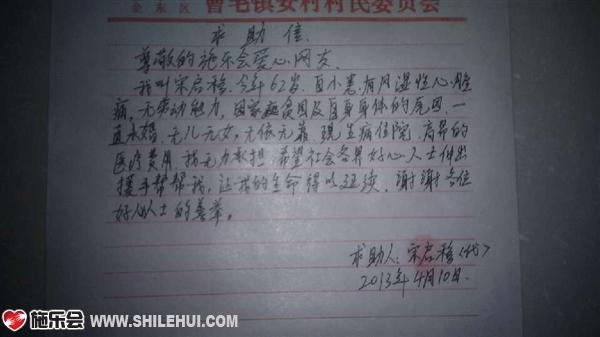 金东区 曹宅镇安村村民委员会
求助信
尊敬的施乐会爱心网友.
我叫宋启稳.今年62岁.自小患有风湿性心脏
病,无劳动能力,因家趈贫困及自身身体的原因一
直未婚.无儿无女,无依无靠.现生病住院.高昂的
医疗费用.我无力承担.希望社会各界好心人士伸出
援手帮帮我,让我的生命得以延续.谢谢各位
好心人士的善举。
求助人:宋启稳(代)
2013年4月10日.
施乐会 WWW.SHILEHUI.COM